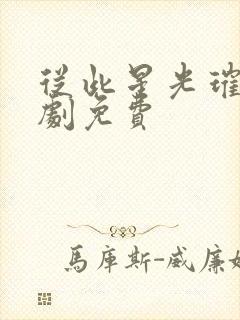 從此星光璀
劇免費
馬庫斯-威廉